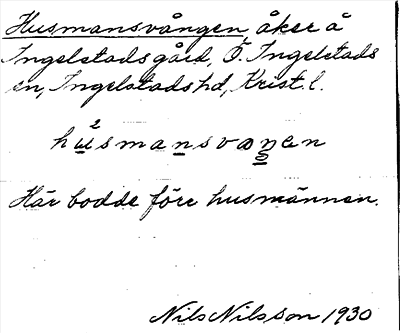 Husmansvången, åker å
Ingelstads gård, Ö. Ingelstads
sn, Ingelstads hd, Krist. l.
hu²smansvaŋen
Här bodde före husmännen.
Nils Nilsson 1930